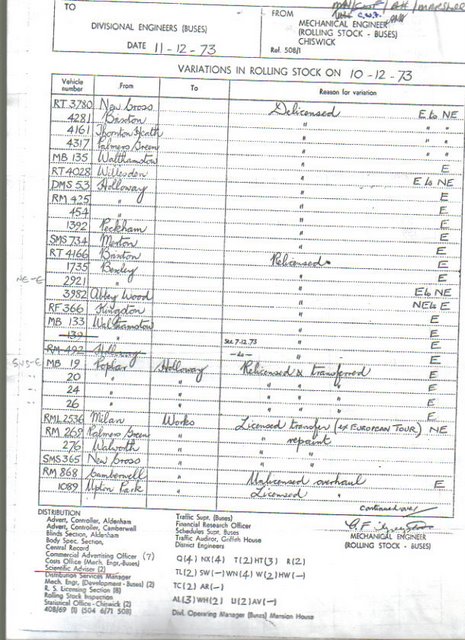 TO
DIVISIONAL ENGINEERS (BUSES)
DATE 11-12-73
FROM
MECHANICAL ENGINEER
(ROLLING STOCK - BUSES)
CHISWICK
Ref. 508/1
VARIATIONS IN ROLLING STOCK ON 10-12-73
Vehicle number From To Reason for variation
RT 3780 New Cross Delicensed E to NE
4281 Brixton " " "
4161 Thornton Heath " " "
4317 Palmers Green " " "
MB 135 Walthamstow " E
RT 4028 Willesden " E to NE
DMS 53 Holloway " E
RM 425 " " E
454 " " E
1392 Peckham " E
SMS 734 Merton " E
RT 4166 Brixton Relicensed E
1735 Bexley " E
NE-E 2921 " " E
3982 Abbey Wood " E to NE
RF 366 Kingston " NE to E
MB 133 Walthamstow " E
139 " SEE 7-12-73 E
RM 492 Holloway -do- E
SUS-E MB 19 Poplar Holloway Relicensed & transferred E
20 " " " " " E
24 " " " " " E
26 " " " " " E
RML 2536 Milan Works Licensed transfer (ex EUROPEAN TOUR) NE
RM 269 Palmers Green " " repaint
276 Walworth " " "
SMS 365 New Cross " "
RM 868 Camberwell " Unlicensed overhaul E
1089 Upton Park " Licensed "
continued over
MECHANICAL ENGINEER
(ROLLING STOCK - BUSES)
DISTRIBUTION
Advert. Controller, Aldenham
Advert. Controller, Camberwell
Blinds Section, Aldenham
Body Spec. Section,
Central Record
Commercial Advertising Officer (7)
Costs Office (Mech. Engr.-Buses)
Scientific Adviser (2)
Distribution Services Manager
Mech. Engr. (Development - Buses) (2)
R. S. Licensing Section (8)
Rolling Stock Inspection
Statistical Office - Chiswick (2)
408/69 (1) (504 6/71 508)
Traffic Supt. (Buses)
Financial Research Officer
Schedules Supt. Buses
Traffic Auditor, Griffith House
District Engineers
Q(4) NX(4) T(2) HT(3) R(2)
TL(2) SW(-) WN(4) W(2) HW(-)
TC(2) AR(-)
AL(3) WH(2) U(2) AV(-)
Divl. Operating Manager (Buses) Mansion House